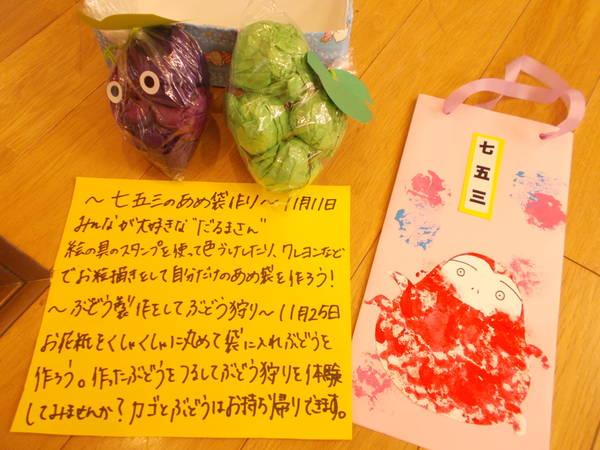 ～七五三のあめ袋作り～11月11日
みんなが大好きな"だるまさん"
絵の具のスタンプを使って色づけしたり、クレヨンなど
でお絵描きをして自分だけのあめ袋を作ろう！
～ぶどう製作をしてぶどう狩り～11月25日
お花紙をくしゃくしゃに丸めて袋に入れぶどうを
作ろう。作ったぶどうをつるしてぶどう狩りを体験
してみませんか？カゴとぶどうはお持ち帰りできます。
七五三